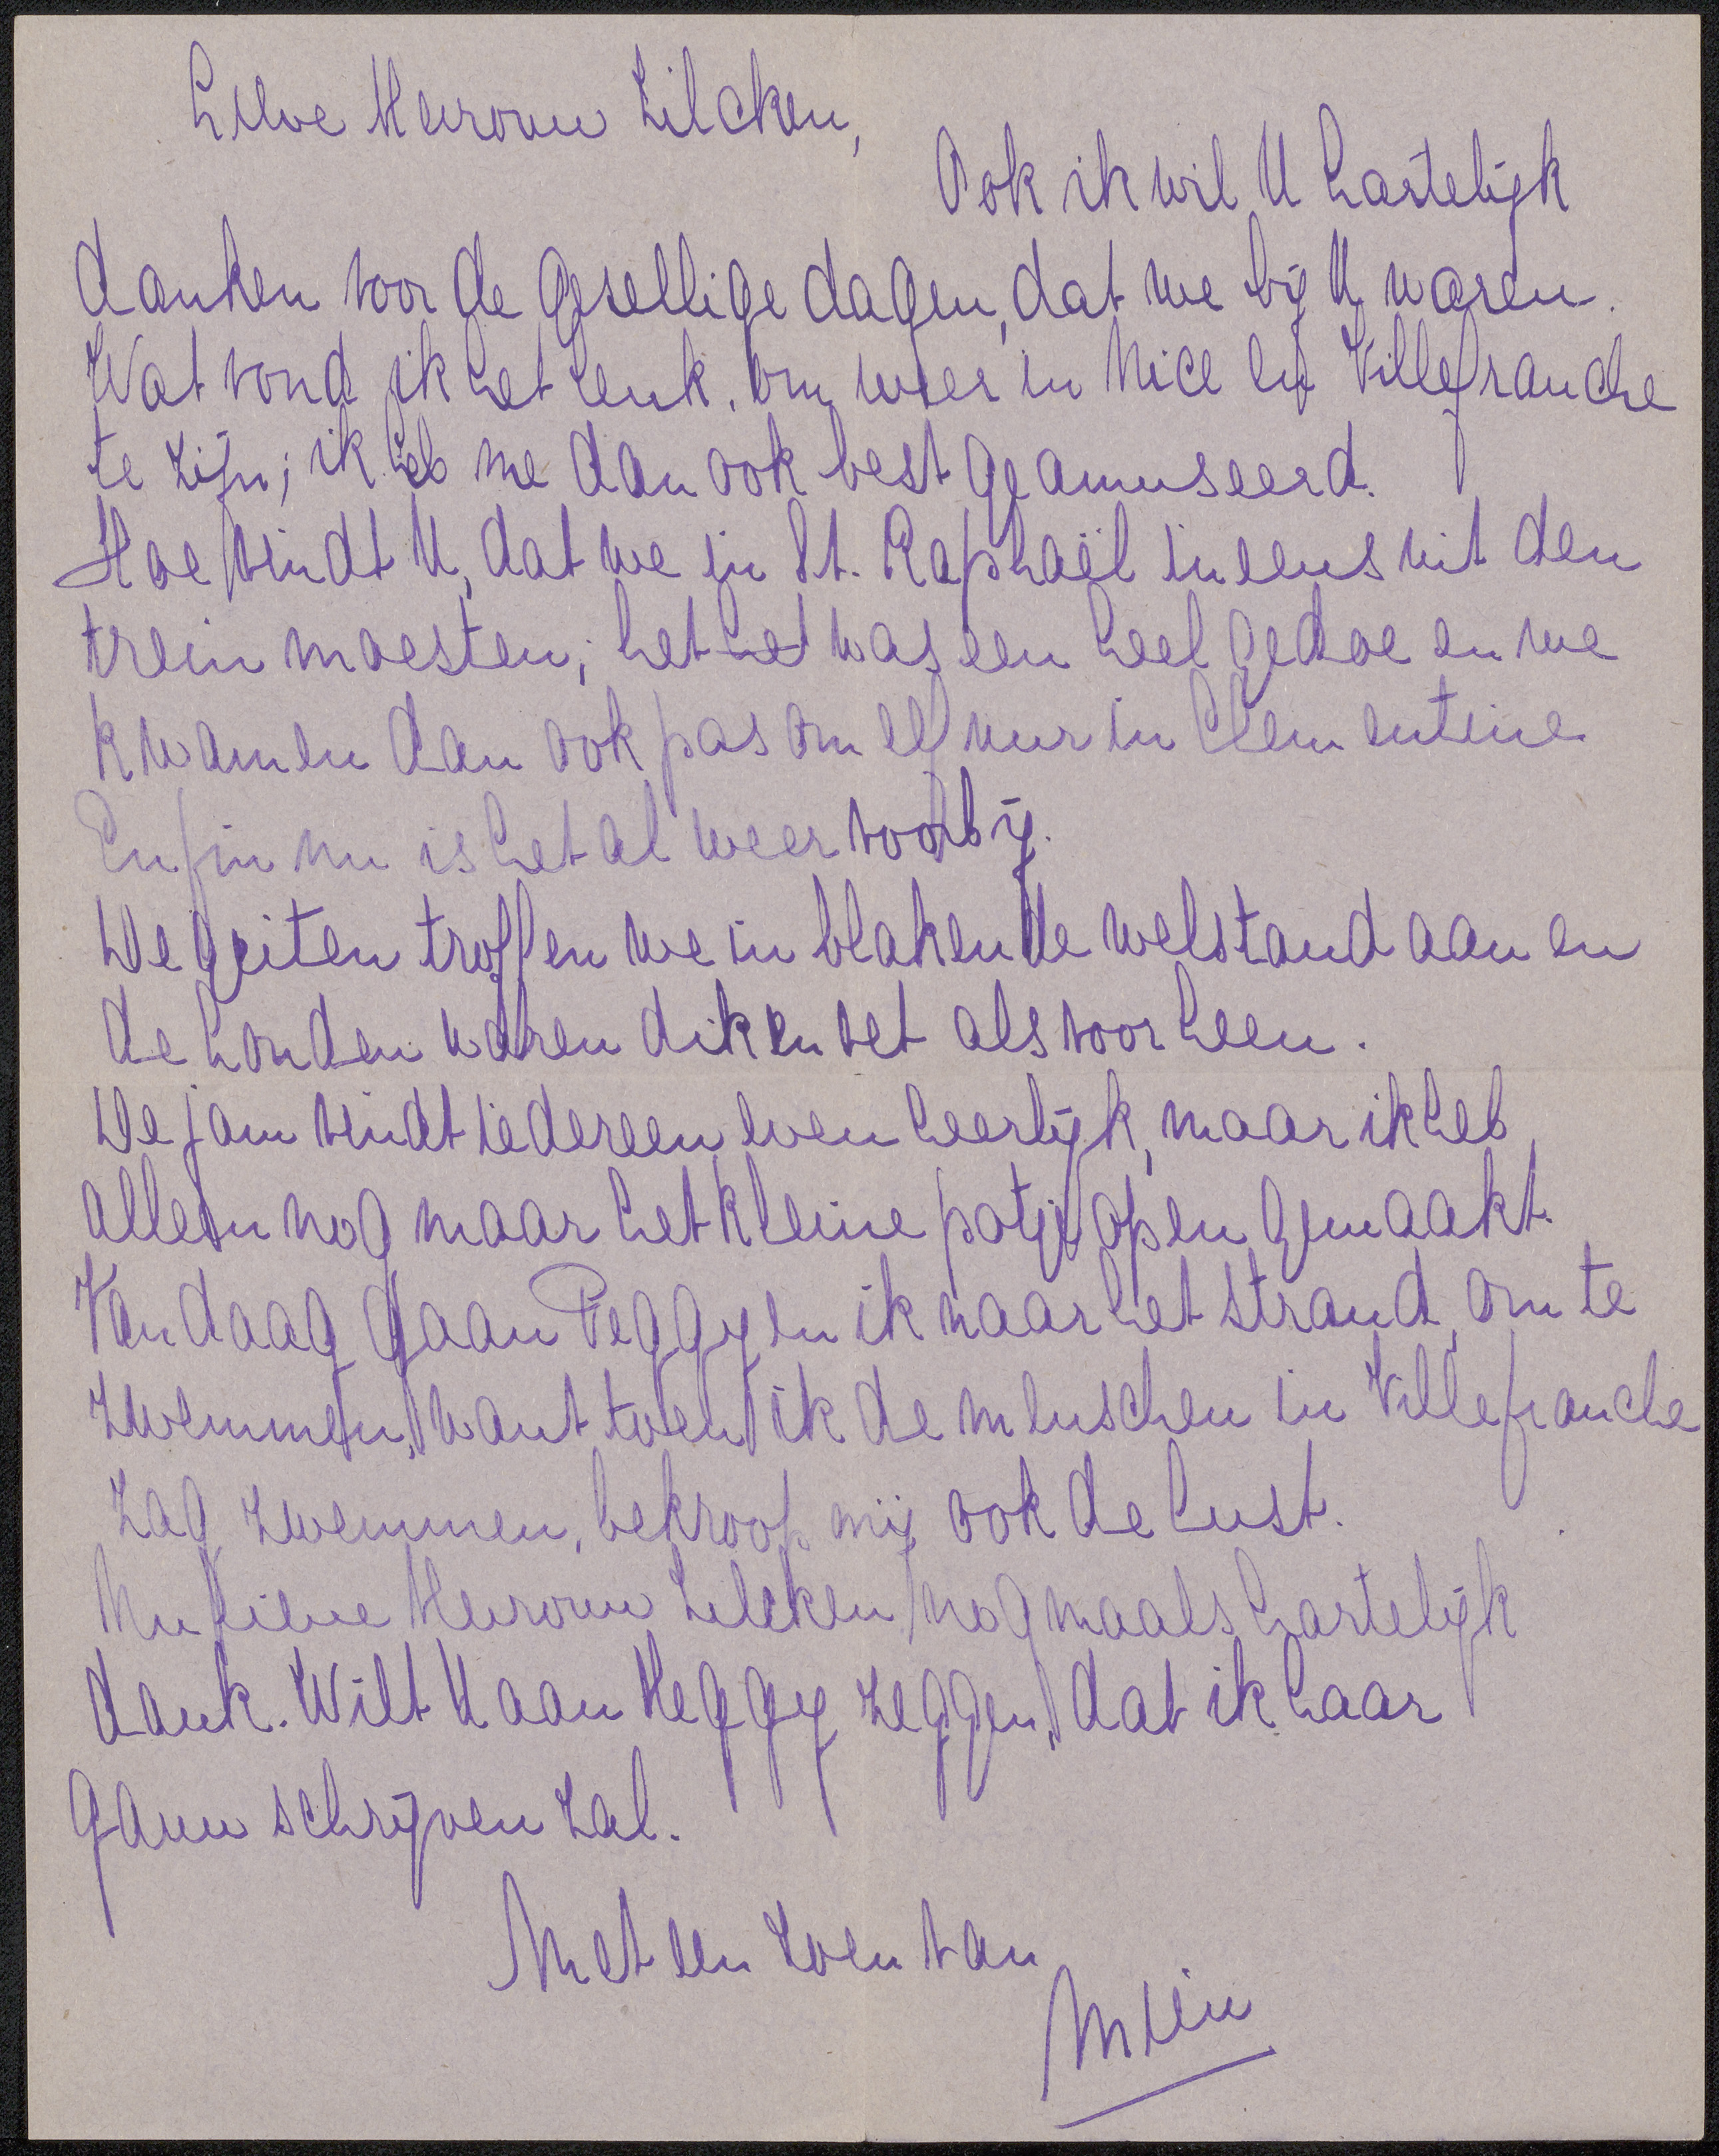 Lieve Mevrouw Zilcken,
Ook ik wil U hartelijk
danken voor de gesellige dagen, dat we bij U waren.
Wat vond ik het leuk, om weer in Nice en Villefranche
te zijn; ik heb me dan ook best geamuseerd.
Hoe vindt U, dat we in St. Raphaël ineens uit den
trein moesten; het het was een heel gedoe en we
kwamen dan ook pas om elf uur in Clementine
Enfin nu is het al weer voorbij.
De geiten troffen we in blakende welstand aan en
de honden waren dik en vet als voorheen.
De jam vindt iedereen even heerlijk, maar ik heb
alleen nog maar het kleine potje open gemaakt.
Vandaag gaan Peggy en ik naar het strand, om te
zwemmen, want toen ik de menschen in Villefranche
zag zwemmen, bekroop mij ook de lust.
Nu lieve Mevrouw Zilcken, nogmaals hartelijk
dank. Wilt U aan Heggy zeggen, dat ik haar
gauw schrijven zal.
Met een zoen van
Mien